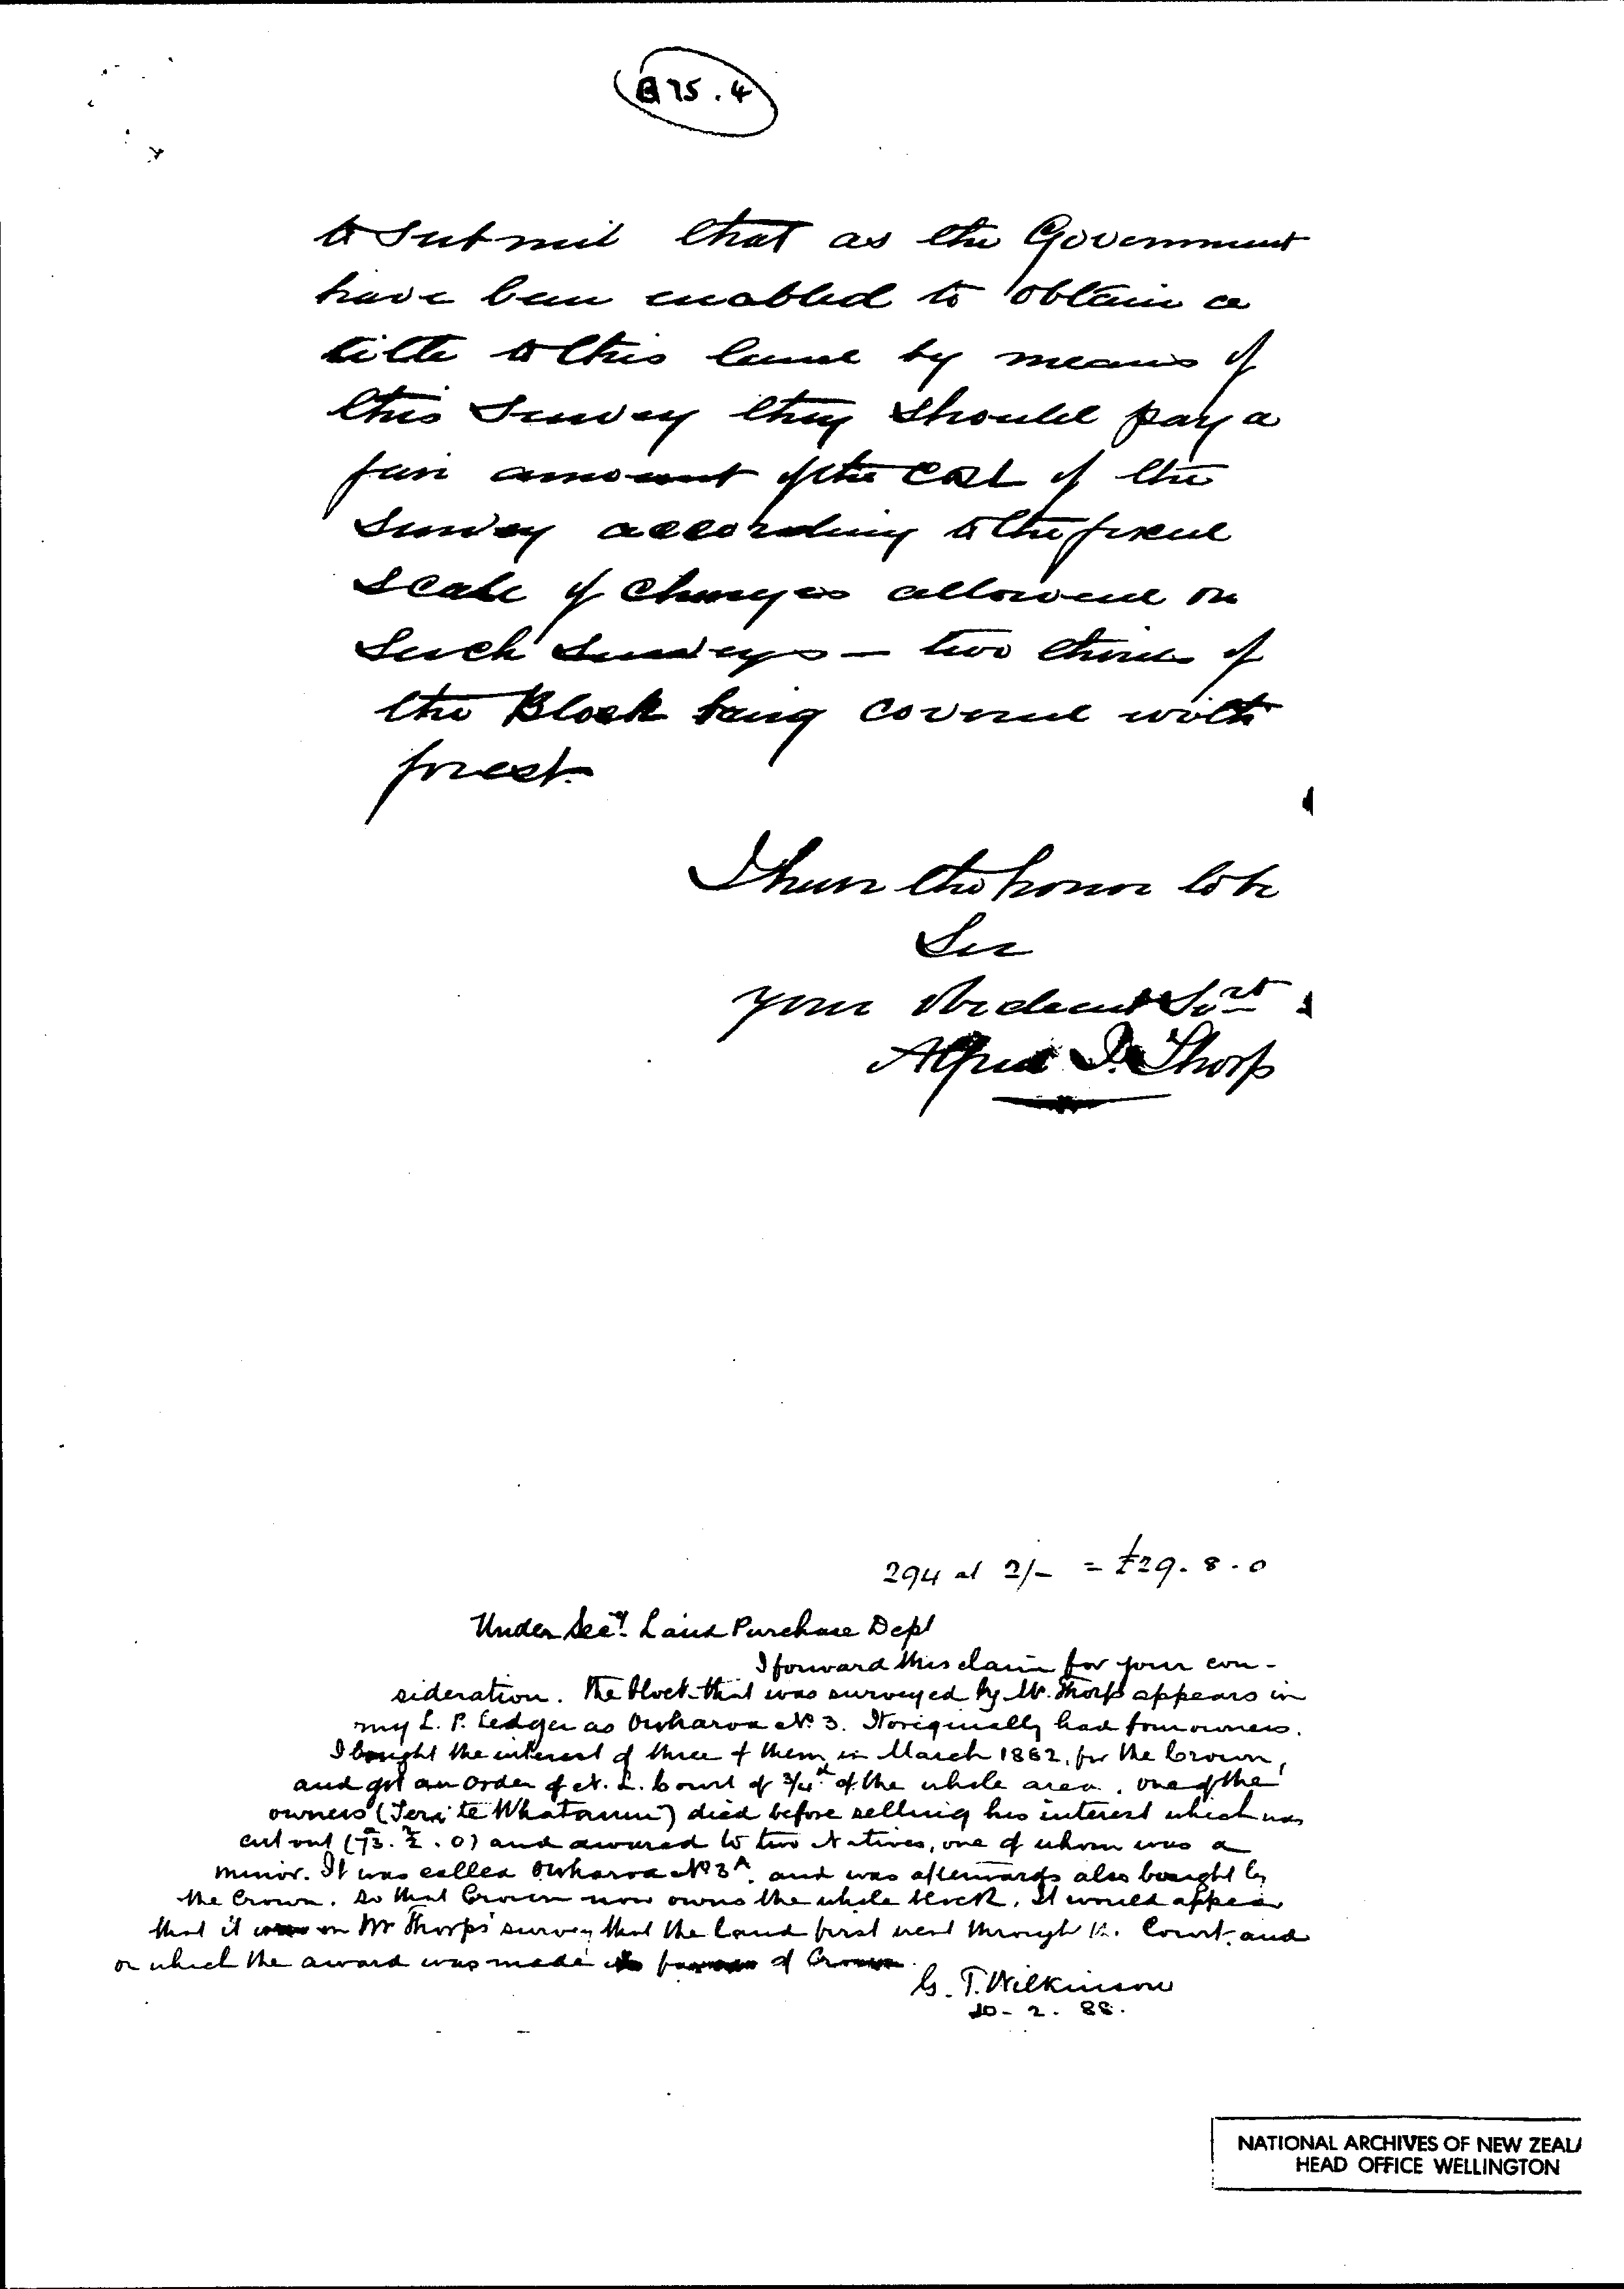 B75.4
to submit that as the Government
have been enabled to obtain a
title to this land by means of
this Survey they should pay a
fair amount of the cost of the
Survey according to the fixed
scale of charges allowed on
such surveys – two thirds of
the Block being covered with
forest.
I have the honor to be
Sir
Your Obedient Servt
Alfred J. Thorp
294 at 2/- = £29.8.0
Under Secy. Land Purchase Dept
I forward this claim for your con-
sideration. The block that was surveyed by Mr. Thorp appears in
my L. P. Ledger as Owharoa No 3. It originally had four owners.
I bought the interest of three of them in March 1882, for the Crown,
and got an Order of N. L. Court of 3/4d of the whole area. One of the
owners (Tera te Whatanui) died before selling his interest which was
cut out (73. 2. 0) and awarded to two Natives, one of whom was a
minor. It was called Owharoa No 3A. and was afterwards also bought by
the Crown. So that Crown now owns the whole block. It would appear
that it was on Mr Thorp's survey that the land first went through the Court, and
on which the award was made in favour of Crown.
G. T. Wilkinson
10-2.88.
NATIONAL ARCHIVES OF NEW ZEAL
HEAD OFFICE WELLINGTON